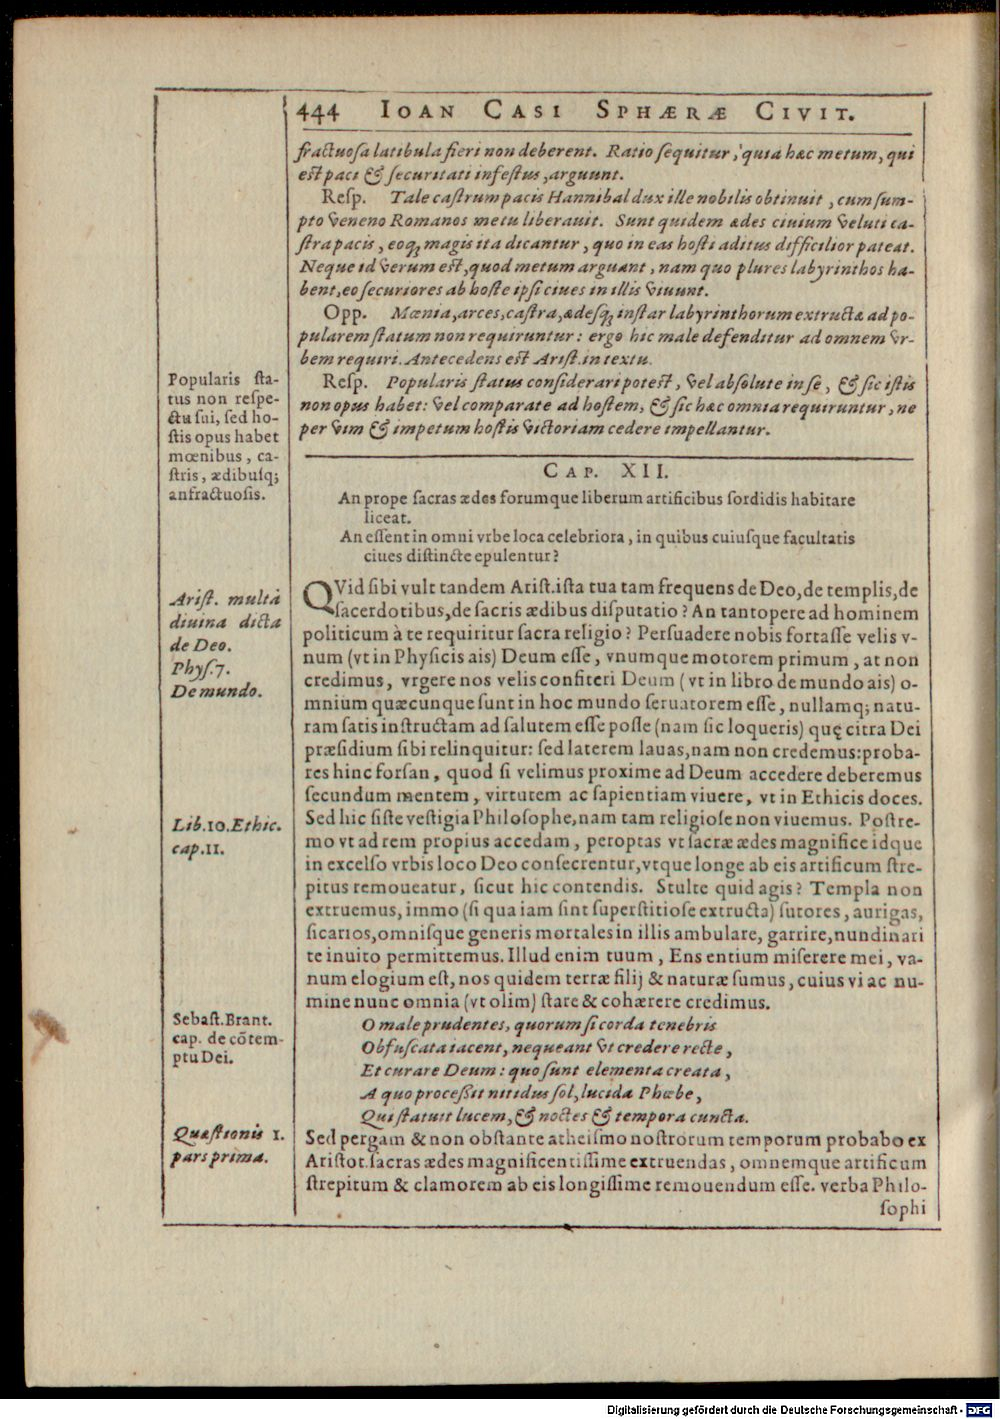 444 IOAN CASI SPHÆRÆ CIVIT.
fractuosa latibula fieri non deberent. Ratio sequitur, quia hæc metum, qui
est paci & securitati infestus, arguunt.
Resp. Tale castrum pacis Hannibal dux ille nobilis obtinuit, cum sum-
pto veneno Romanos metu liberauit. Sunt quidem ædes ciuium veluti ca-
stra pacis, eoq; magis ita dicantur, quo in eas hosti aditus difficilior pateat.
Neque id verum est, quod metum arguant, nam quo plures labyrinthos ha-
bent, eo securiores ab hoste ipsi ciues in illis viuunt.
Opp. Mœnia, arces, castra, ædesq; instar labyrinthorum extructæ ad po-
pularem statum non requiruntur: ergo hic male defenditur ad omnem vr-
bem requiri. Antecedens est Arist. in textu.
Popularis sta-
tus non respe-
ctu sui, sed ho-
stis opus habet
mœnibus, ca-
stris, ædibusq;
anfractuosis.
Resp. Popularis status considerari potest, vel absolute in se, & sic istis
non opus habet: vel comparate ad hostem, & sic hæc omnia requiruntur, ne
per vim & impetum hostis victoriam cedere impellantur.
CAP. XII.
An prope sacras ædes forumque liberum artificibus sordidis habitare
liceat.
An essent in omni vrbe loca celebriora, in quibus cuiusque facultatis
ciues distincte epulentur?
Arist. multa
diuina dicta
de Deo.
Phys. 7.
De mundo.
QVid sibi vult tandem Arist. ista tua tam frequens de Deo, de templis, de
sacerdotibus, de sacris ædibus disputatio? An tantopere ad hominem
politicum à te requiritur sacra religio? Persuadere nobis fortasse velis v-
num (vt in Physicis ais) Deum esse, vnumque motorem primum, at non
credimus, vrgere nos velis confiteri Deum (vt in libro de mundo ais) o-
mnium quæcunque sunt in hoc mundo seruatorem esse, nullamq; natu-
ram satis instructam ad salutem esse posse (nam sic loqueris) quę citra Dei
præsidium sibi relinquitur: sed laterem lauas, nam non credemus: proba-
res hinc forsan, quod si velimus proxime ad Deum accedere deberemus
secundum mentem, virtutem ac sapientiam viuere, vt in Ethicis doces.
Lib. 10. Ethic.
cap. 11.
Sed hic siste vestigia Philosophe, nam tam religiose non viuemus. Postre-
mo vt ad rem propius accedam, peroptas vt sacræ ædes magnifice idque
in excelso vrbis loco Deo consecrentur, vtque longe ab eis artificum stre-
pitus remoueatur, sicut hic contendis. Stulte quid agis? Templa non
extruemus, immo (si qua iam sint superstitiose extructa) sutores, aurigas,
sicarios, omnisque generis mortales in illis ambulare, garrire, nundinari
te inuito permittemus. Illud enim tuum, Ens entium miserere mei, va-
num elogium est, nos quidem terræ filij & naturæ sumus, cuius vi ac nu-
mine nunc omnia (vt olim) stare & cohærere credimus.
Sebast. Brant.
cap. de cõtem-
ptu Dei.
O male prudentes, quorum si corda tenebris
Obfuscata iacent, nequeant vt credere recte,
Et curare Deum: quo sunt elementa creata,
A quo processit nitidus sol, lucida Phœbe,
Qui statuit lucem, & noctes & tempora cuncta.
Quæstionis 1.
pars prima.
Sed pergam & non obstante atheismo nostrorum temporum probabo ex
Aristot. sacras ædes magnificentissime extruendas, omnemque artificum
strepitum & clamorem ab eis longissime remouendum esse. verba Philo-
sophi
Digitalisierung gefördert durch die Deutsche Forschungsgemeinschaft - DFG